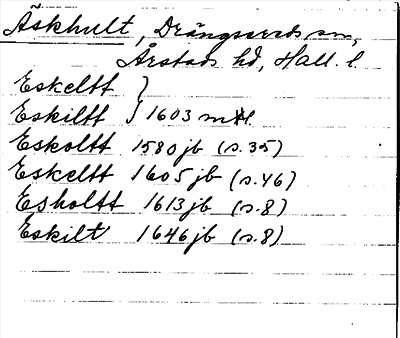 Äskhult, Drängsereds sn,
Årstads hd, Hall. l.
Eskeltt }
Eskiltt } 1603 mtl
Eskoltt 1580 jb (s. 35)
Eskeltt 1605 jb (s. 46)
Esholtt 1613 jb (s. 8)
Eskilt 1646 jb (s. 8)